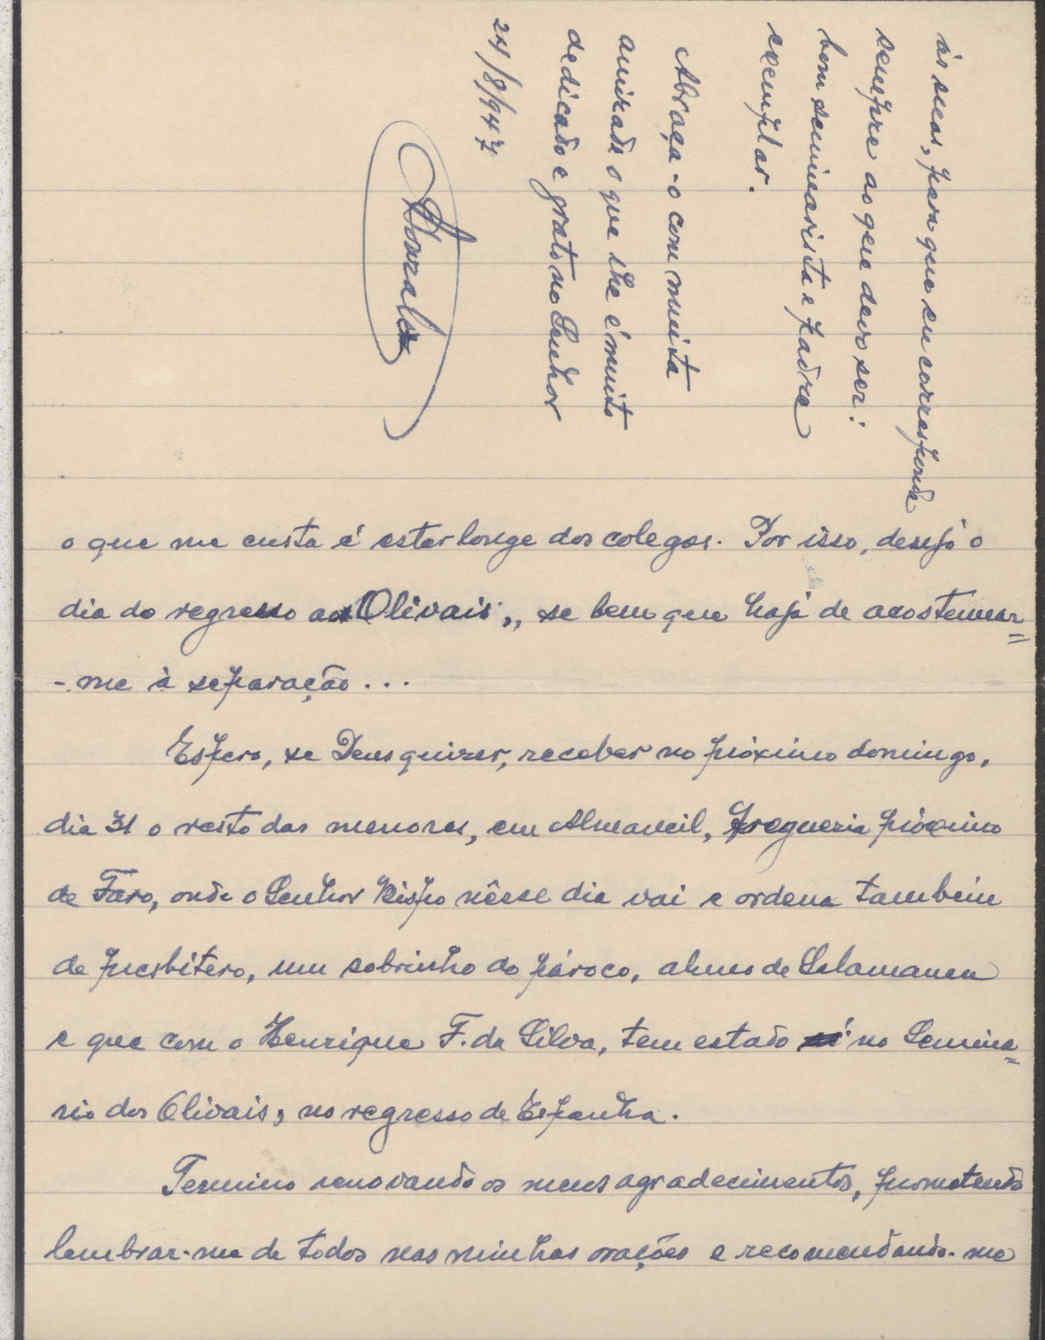 o que me custa é estar longe dos colegas. Por isso, desejo o
dia do regresso aos Olivais,, se bem que haja de acostumar=
-me à separação...
Espero, se Deus quizer, receber no próximo domingo,
dia 31 o resto das menores, em Almancil, freguesia próximo
de Faro, onde o Senhor Bispo nêsse dia vai e ordena também
de presbítero, um sobrinho do pároco, aluno de Salamanca
e que com o Henrique F. da Silva, tem estado no Semina=
rio dos Olivais, no regresso de Espanha.
Termino renovando os meus agradecimentos, prometendo
lembrar-me de todos nas minhas orações e recomendando-me
às suas, para que eu corresponda
sempre ao que devo ser:
bom seminarista e padre
exemplar.
Abraça-o com muita
amizade o que lhe é muito
dedicado e grato no Senhor
24/8/947